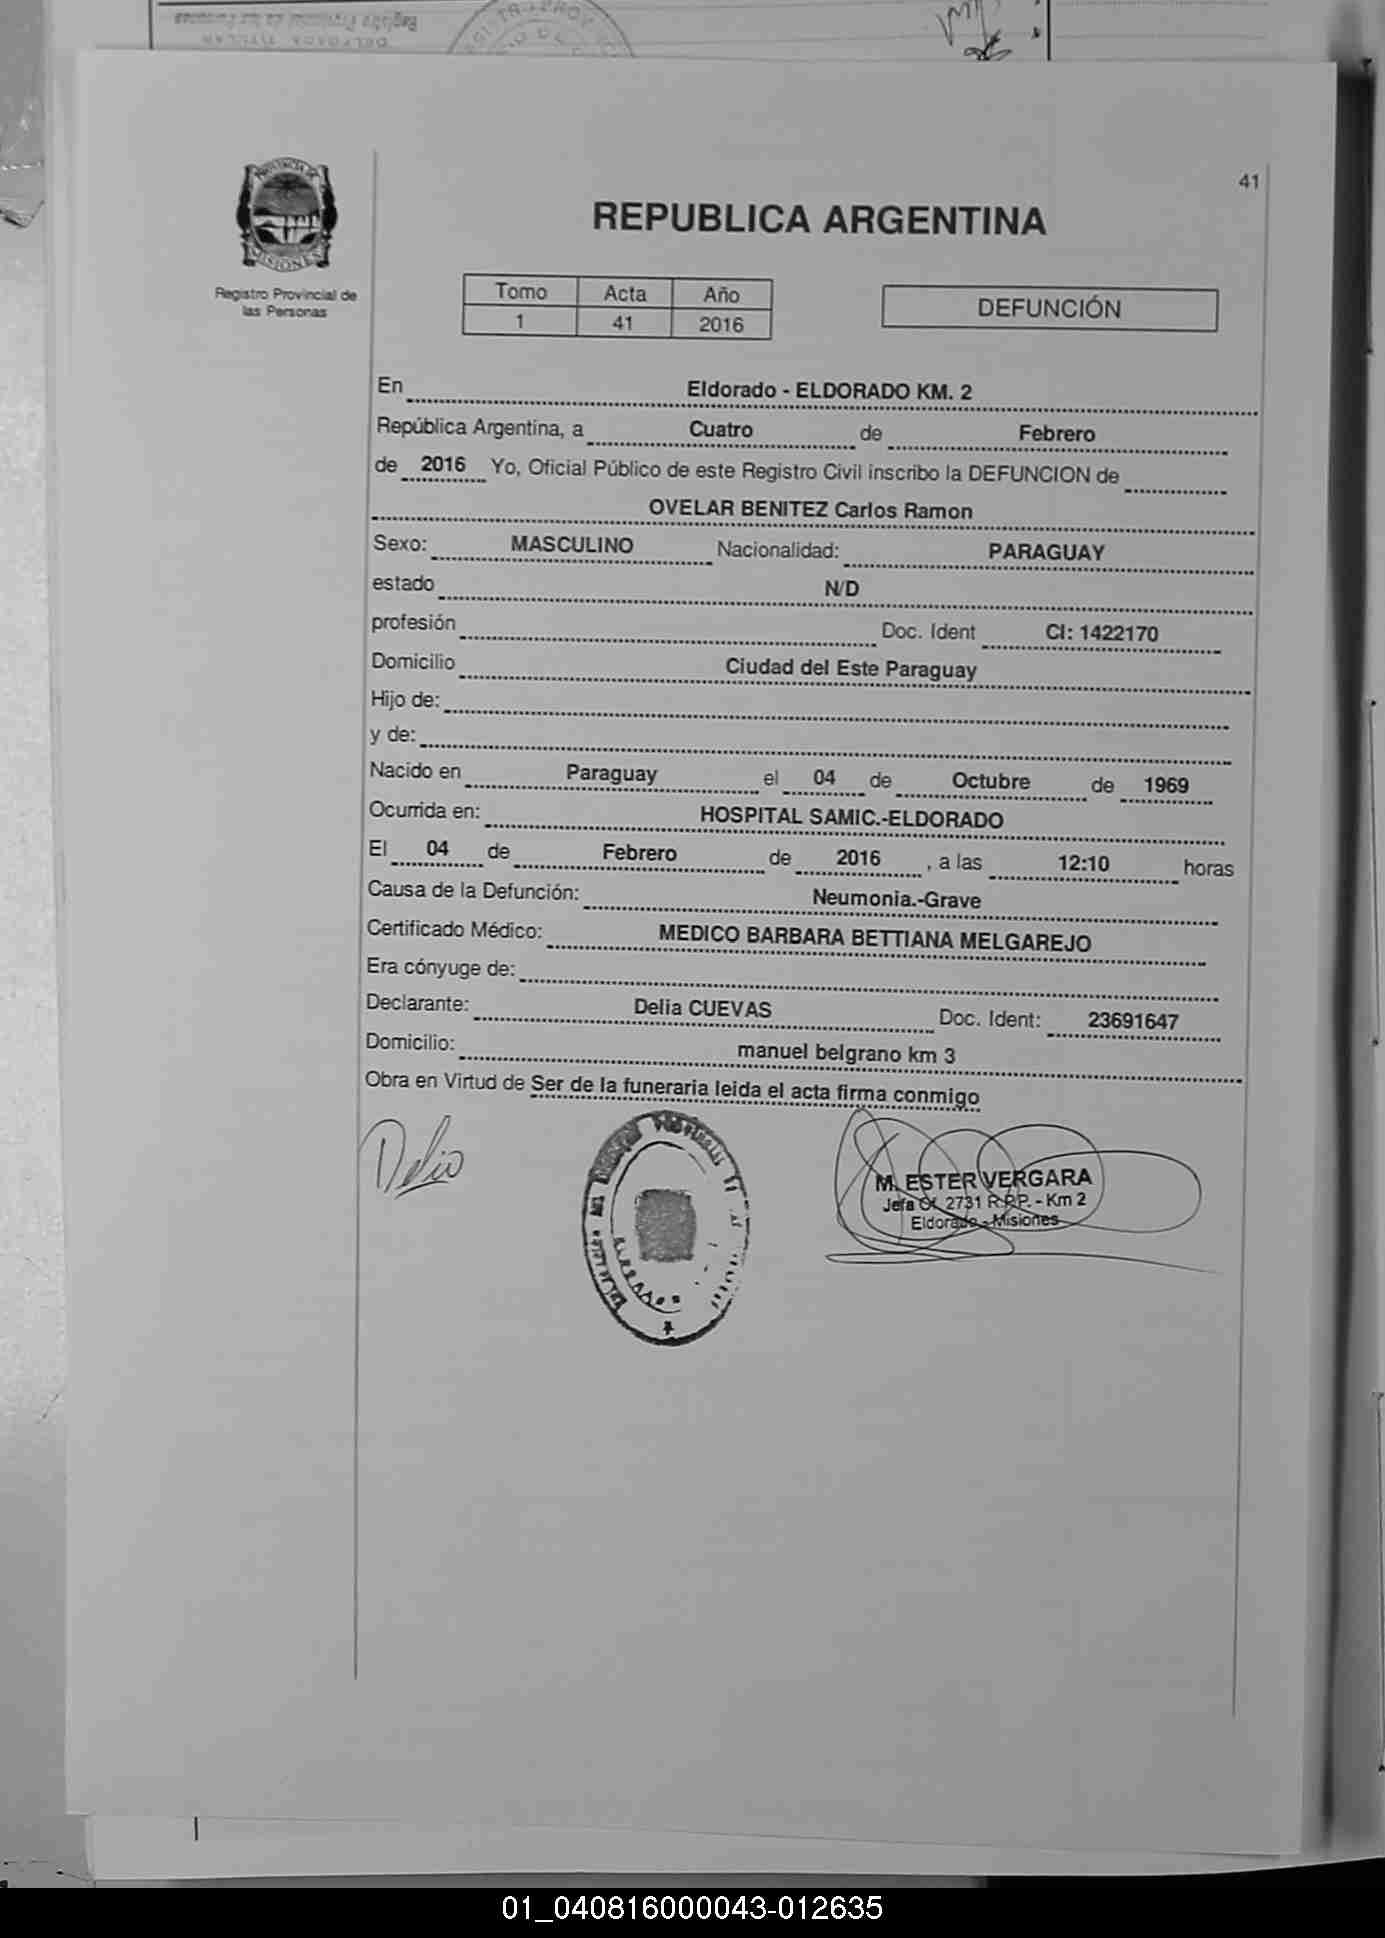 41
PROVINCIA DE
MISIONES
Registro Provincial de
las Personas
REPUBLICA ARGENTINA
Tomo Acta Año
1 41 2016
DEFUNCIÓN
En Eldorado - ELDORADO KM. 2
República Argentina, a Cuatro de Febrero
de 2016 Yo, Oficial Público de este Registro Civil inscribo la DEFUNCION de
OVELAR BENITEZ Carlos Ramon
Sexo: MASCULINO Nacionalidad: PARAGUAY
estado N/D
profesión Doc. Ident CI: 1422170
Domicilio Ciudad del Este Paraguay
Hijo de:
y de:
Nacido en Paraguay el 04 de Octubre de 1969
Ocurrida en: HOSPITAL SAMIC.-ELDORADO
El 04 de Febrero de 2016 , a las 12:10 horas
Causa de la Defunción: Neumonia.-Grave
Certificado Médico: MEDICO BARBARA BETTIANA MELGAREJO
Era cónyuge de:
Declarante: Delia CUEVAS Doc. Ident: 23691647
Domicilio: manuel belgrano km 3
Obra en Virtud de Ser de la funeraria leida el acta firma conmigo
Delia
M. ESTER VERGARA
Jefa Of. 2731 R.P.P. - Km 2
Eldorado - Misiones
01_040816000043-012635